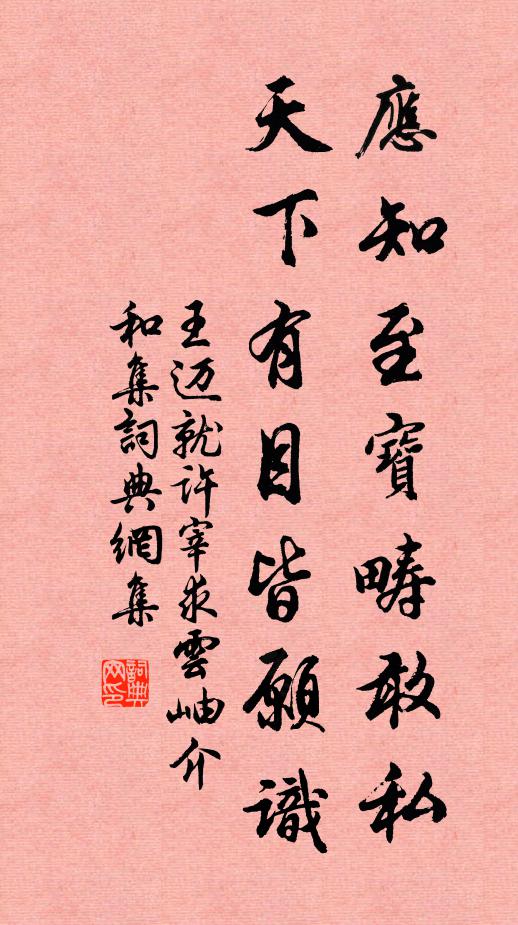 應知至寶疇敢私
天下有目皆願識
王迈就许宰求雲岫介
和集詞典網集
詞典網印